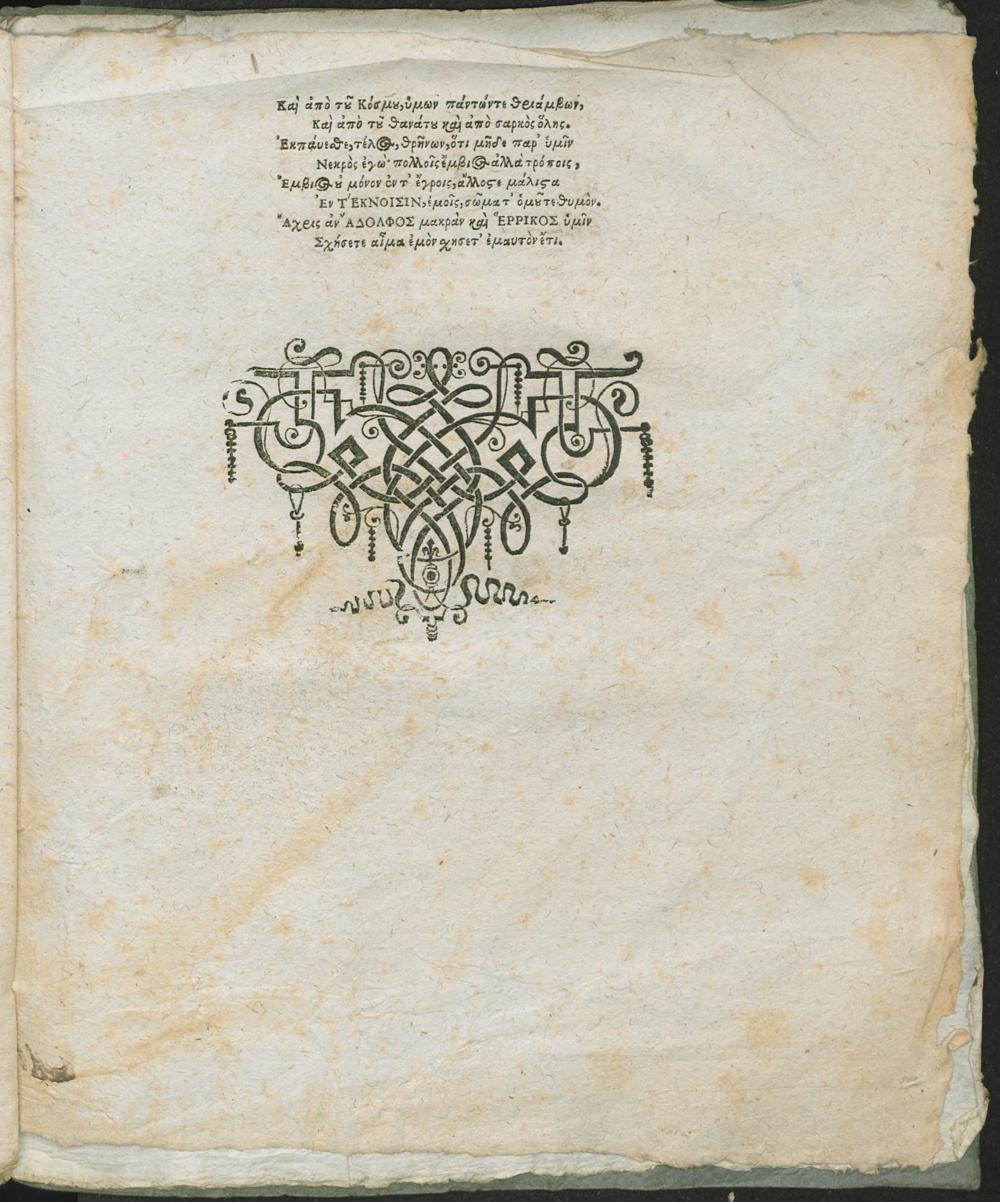 Καὶ ἀπὸ τȣ͂ Κόσμȣ, ὑμων πάντώντε θριάμβων,
Καὶ ἀπὸ τȣ͂ θανάτȣ καὶ ἀπὸ σαρκὸς ὅλης.
Ἐκπάυεσθε, τέλος, θρῆνων, ὅτι μῆδε παρ' ὑμῖν
Νεκρὸς ἐγὼ· πολλοῖς ἔμβιος ἀλλὰ τρόποις,
Ἔμβιος ȣ̓ μόνον ὀντ' ἔγροις, ἀλλοστε μάλιστα
Ἐν Τ'ΕΚΝΟΙΣΙΝ, ἐμοῖς, σῶματ' ὁμȣ͂τε θυμὸν.
Ἄχρις ἀν ἌΔΟΛΦΟΣ μακρὰν καὶ ἙΡΡΙΚΟΣ ὑμῖν
Σχήσετε αἷμα ἐμὸν χησετ' ἐμαυτὸν ἔτι.